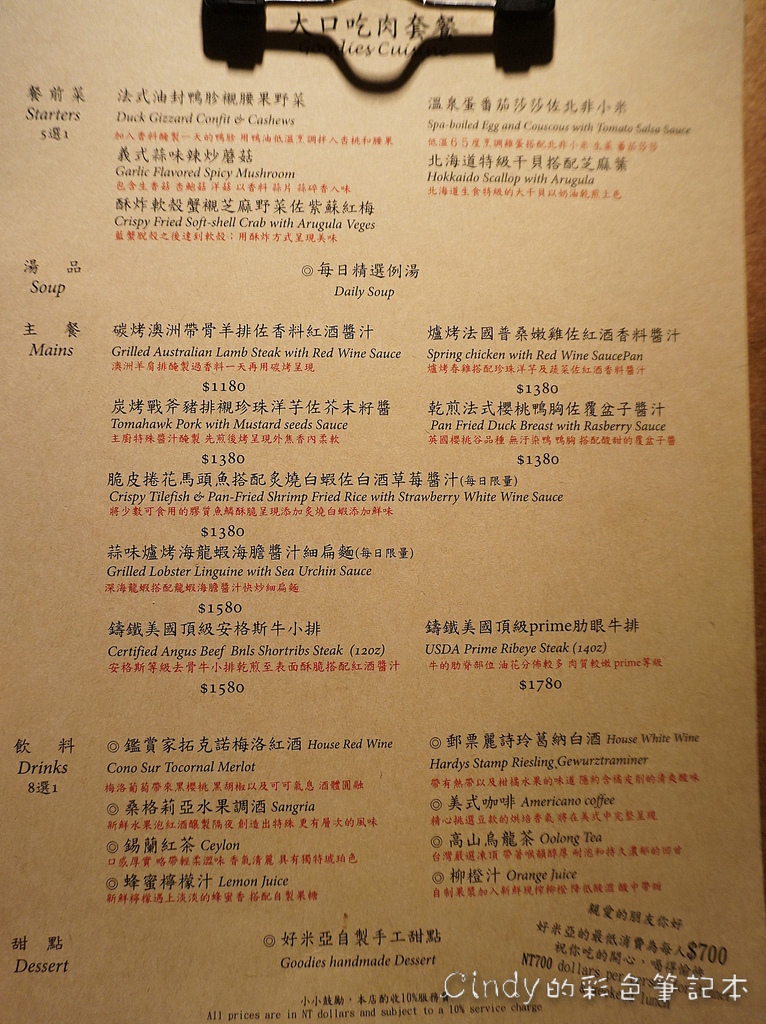 大口吃肉套餐
Goodies Cuisine
餐前菜
Starters
5選1
法式油封鴨胗襯腰果野菜
Duck Gizzard Confit & Cashews
加入香料醃製一天的鴨胗 用鴨油低溫烹調拌入杏桃和腰果
義式蒜味辣炒蘑菇
Garlic Flavored Spicy Mushroom
包含生香菇 杏鮑菇 洋菇 以香料 蒜片 蒜碎香入味
酥炸軟殼蟹襯芝麻野菜佐紫蘇紅梅
Crispy Fried Soft-shell Crab with Arugula Veges
藍蟹脫殼之後達到軟殼；用酥炸方式呈現美味
溫泉蛋番茄莎莎佐北非小米
Spa-boiled Egg and Couscous with Tomato Salsa Sauce
低溫65度烹調雞蛋搭配北非小米 生菜 番茄莎莎
北海道特級干貝搭配芝麻葉
Hokkaido Scallop with Arugula
北海道生食特級的大干貝以奶油乾煎上色
湯品
Soup
◎每日精選例湯
Daily Soup
主餐
Mains
碳烤澳洲帶骨羊排佐香料紅酒醬汁
Grilled Australian Lamb Steak with Red Wine Sauce
澳洲羊肩排醃製過香料一天再用碳烤呈現
$1180
爐烤法國普桑嫩雞佐紅酒香料醬汁
Spring chicken with Red Wine SaucePan
爐烤春雞搭配珍珠洋芋及蔬菜佐紅酒香料醬汁
$1380
炭烤戰斧豬排襯珍珠洋芋佐芥末籽醬
Tomahawk Pork with Mustard seeds Sauce
主廚特殊醬汁醃製 先煎後烤呈現外焦香內柔軟
$1380
乾煎法式櫻桃鴨胸佐覆盆子醬汁
Pan Fried Duck Breast with Rasberry Sauce
英國櫻桃谷品種 無汙染鴨 鴨胸 搭配酸甜的覆盆子醬
$1380
脆皮捲花馬頭魚搭配炙燒白蝦佐白酒草莓醬汁(每日限量)
Crispy Tilefish & Pan-Fried Shrimp Fried Rice with Strawberry White Wine Sauce
將少數可食用的膠質魚鱗酥脆呈現添加炙燒白蝦添加鮮味
$1380
蒜味爐烤海龍蝦海膽醬汁細扁麵(每日限量)
Grilled Lobster Linguine with Sea Urchin Sauce
深海龍蝦搭配龍蝦海膽醬汁快炒細扁麵
$1580
鑄鐵美國頂級安格斯牛小排
Certified Angus Beef Bnls Shortribs Steak (12oz)
安格斯等級去骨牛小排乾煎至表面酥脆搭配紅酒醬汁
$1580
鑄鐵美國頂級prime肋眼牛排
USDA Prime Ribeye Steak (14oz)
牛的肋脊部位 油花分佈較多 肉質較嫩 prime等級
$1780
飲料
Drinks
8選1
◎鑑賞家拓克諾梅洛紅酒 House Red Wine
Cono Sur Tocornal Merlot
梅洛葡萄帶來黑櫻桃 黑胡椒以及可可氣息 酒體圓融
◎桑格莉亞水果調酒 Sangria
新鮮水果泡紅酒釀製隔夜 創造出特殊 更有層次的風味
◎錫蘭紅茶 Ceylon
口感厚實 略帶輕柔澀味 香氣清麗 具有獨特琥珀色
◎蜂蜜檸檬汁 Lemon Juice
新鮮檸檬遇上淡淡的蜂蜜香 搭配自製果糖
◎郵票麗詩玲葛納白酒 House White Wine
Hardys Stamp Riesling,Gewurztraminer
帶有熱帶以及柑橘水果的味道 隱約含橘皮削的清爽酸味
◎美式咖啡 Americano coffee
精心挑選豆款的烘焙香氣 將在美式中完整呈現
◎高山烏龍茶 Oolong Tea
台灣嚴選凍頂 帶著喉韻醇厚 耐泡和持久濃郁的回甘
◎柳橙汁 Orange Juice
自制果漿加入新鮮現榨柳橙 降低酸澀 酸中帶甜
甜點
Dessert
◎好米亞自製手工甜點
Goodies handmade Dessert
親愛的朋友你好
好米亞的最低消費為每人$700
祝你吃的開心，喝得愉快
NT700 dollars per person
lunch
小小鼓勵，本店酌收10%服務費
All prices are in NT dollars and subject to a 10% service charge
Cindy的彩色筆記本